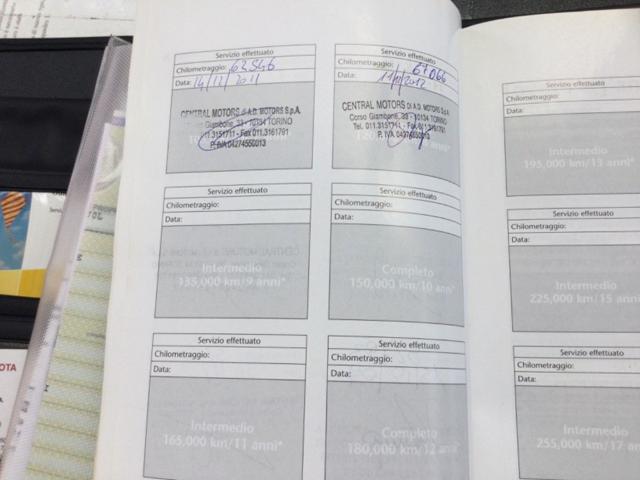 Servizio effettuato
Chilometraggio: 63546
Data: 14/12/2011
CENTRAL MOTORS di A.D. MOTORS S.p.A.
Giambone, 33 - 10134 TORINO
011.3151711 - Fax 011.3161791
P. IVA 04274550013
Servizio effettuato
Chilometraggio: 67066
Data:
CENTRAL MOTORS Di A.D. MOTORS S.p.A.
Corso Giambone, 33 - 10134 TORINO
Tel. 011.3151711 - Fax 011.3161791
P. IVA 04274550013
195,000 km/13 anni*
Servizio effettuato
Chilometraggio:
Data:
Intermedio
135,000 km/9 anni*
Servizio effettuato
Chilometraggio:
Data:
Completo
150,000 km/10 anni*
Servizio effettuato
Chilometraggio:
Data:
Intermedio
225,000 km/15 anni
Servizio effettuato
Chilometraggio:
Data:
Intermedio
165,000 km/11 anni*
Servizio effettuato
Chilometraggio:
Data:
Completo
180,000 km/12 anni*
Servizio effettuato
Chilometraggio:
Data:
Intermedio
255,000 km/17 an
OTA